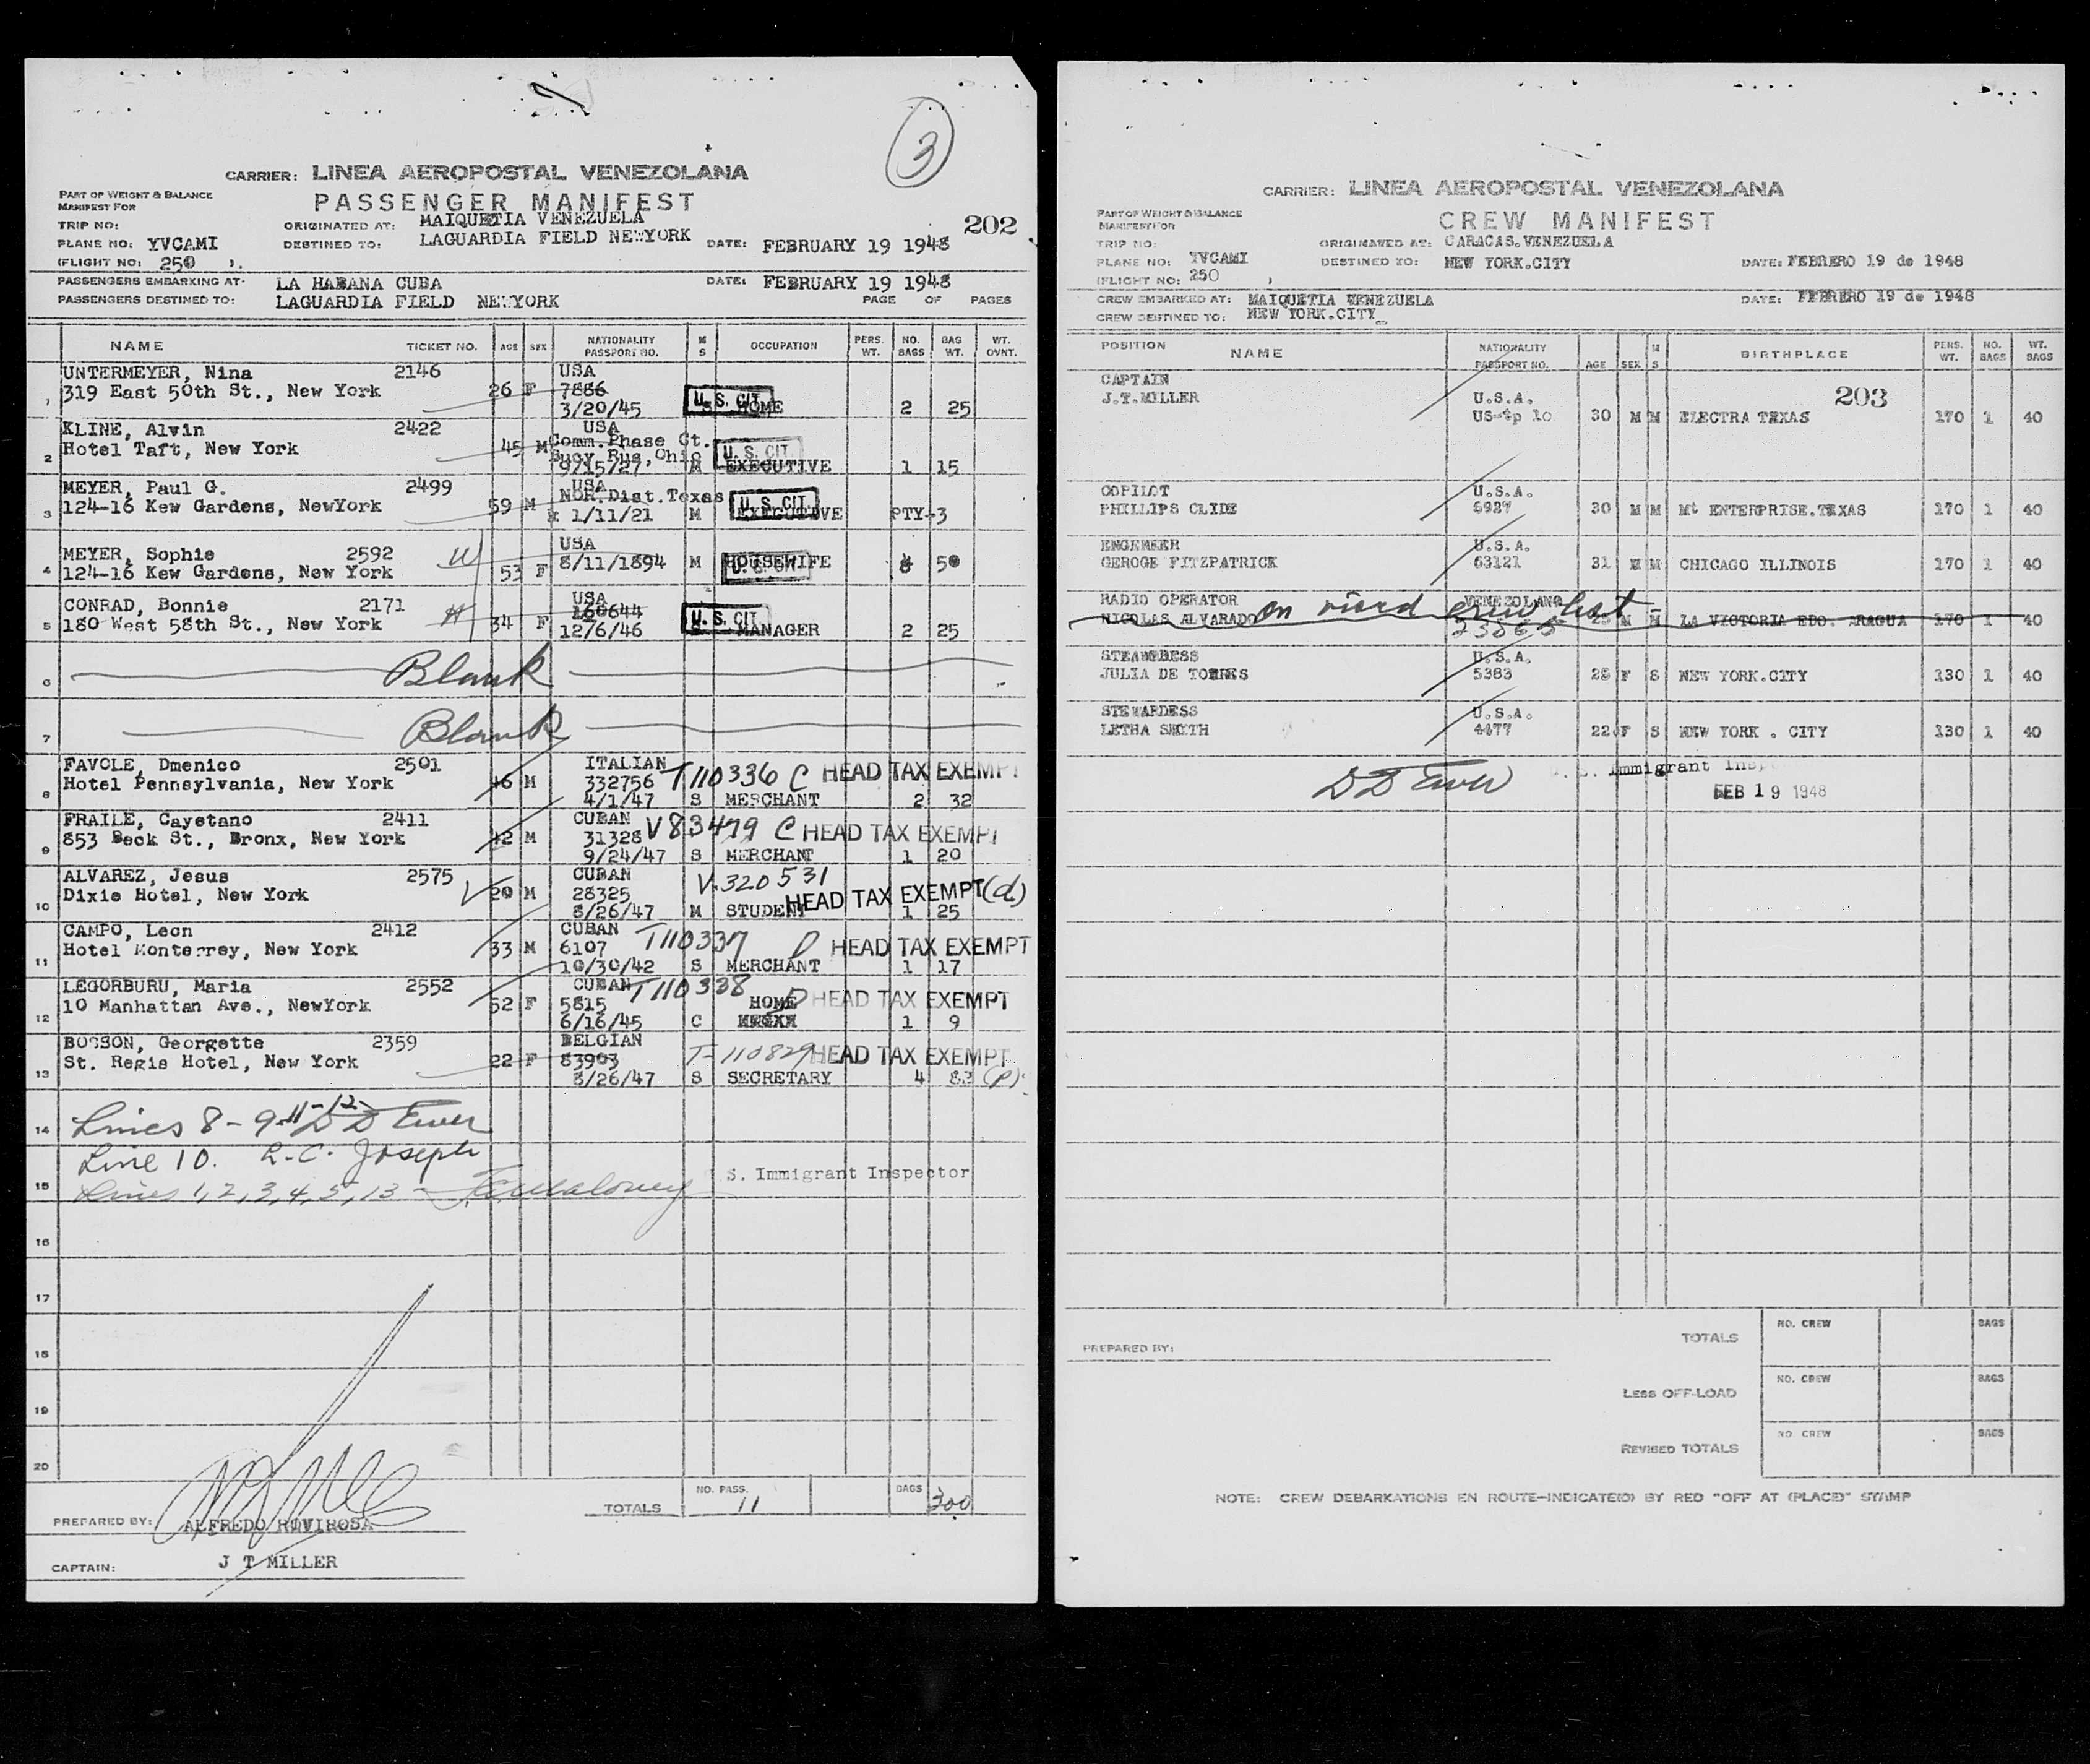 3
CARRIER: LINEA AEROPOSTAL VENEZOLANA
PART OF WEIGHT & BALANCE
MANIFEST FOR
PASSENGER MANIFEST
TRIP NO:
ORIGINATED AT: MAIQUETIA VENEZUELA
202
PLANE NO: YVCAMI
DESTINED TO: LAGUARDIA FIELD NEWYORK
DATE: FEBRUARY 19 1948
(FLIGHT NO: 250 ).
PASSENGERS EMBARKING AT: LA HABANA CUBA
DATE: FEBRUARY 19 1948
PASSENGERS DESTINED TO: LAGUARDIA FIELD NEWYORK
PAGE OF PAGES
NAME TICKET NO. AGE SEX NATIONALITY PASSPORT NO. M S OCCUPATION PERS. WT. NO. BAGS BAG WT. WT. OVNT.
UNTERMEYER, Nina 2146 USA
1 319 East 50th St., New York 26 F 7886
3/20/45 U. S. CIT. HOME 2 25
KLINE, Alvin 2422 USA
2 Hotel Taft, New York 45 M Comm. Phase Ct.
Bucy Rus, Ohio U. S. CIT.
9/15/27 M EXECUTIVE 1 15
MEYER, Paul G. 2499 USA
3 124-16 Kew Gardens, NewYork 59 M NOR. Dist. Texas U. S. CIT.
1/11/21 M EXECUTIVE PTY-3
MEYER, Sophie 2592 USA
4 124-16 Kew Gardens, New York 53 F 8/11/1894 M HOUSEWIFE 50
U. S. CIT.
CONRAD, Bonnie 2171 USA
5 180 West 58th St., New York 34 F 160644 U. S. CIT.
12/6/46 MANAGER 2 25
6 Blank
7 Blank
FAVOLE, Dmenico 2501 ITALIAN
8 Hotel Pennsylvania, New York 46 M 332756 T110336 C HEAD TAX EXEMPT
4/1/47 S MERCHANT 2 32
FRAILE, Cayetano 2411 CUBAN
9 853 Beck St., Bronx, New York 42 M 31328 V83479 C HEAD TAX EXEMPT
9/24/47 S MERCHANT 1 20
ALVAREZ, Jesus 2575 CUBAN V.320531
10 Dixie Hotel, New York 20 M 28325 HEAD TAX EXEMPT (d)
8/26/47 M STUDENT 1 25
CAMPO, Leon 2412 CUBAN
11 Hotel Monterrey, New York 33 M 6107 T110337 P HEAD TAX EXEMPT
10/30/42 S MERCHANT 1 17
LEGORBURU, Maria 2552 CUBAN T110338
12 10 Manhattan Ave., NewYork 52 F 5815 HOME HEAD TAX EXEMPT
6/16/45 C 1 9
BOSSON, Georgette 2359 BELGIAN
13 St. Regis Hotel, New York 22 F 83903 T-110829 HEAD TAX EXEMPT
8/26/47 S SECRETARY 4 83 (P)
14 Lines 8-9-11-12 D D Ewer
Line 10. R.C. Joseph
15 Lines 1,2,3,4,5,13 - Maloney S. Immigrant Inspector
16
17
18
19
20
TOTALS NO. PASS. 11 BAGS 300
PREPARED BY: ALFREDO ROVIROSA
CAPTAIN: J T MILLER
CARRIER: LINEA AEROPOSTAL VENEZOLANA
PART OF WEIGHT & BALANCE
MANIFEST FOR
CREW MANIFEST
TRIP NO:
ORIGINATED AT: CARACAS.VENEZUELA
PLANE NO: YVCAMI
DESTINED TO: NEW YORK.CITY
DATE: FEBRERO 19 de 1948
(FLIGHT NO: 250 )
CREW EMBARKED AT: MAIQUETIA VENEZUELA
DATE: FEBRERO 19 de 1948
CREW DESTINED TO: NEW YORK.CITY
POSITION NAME NATIONALITY PASSPORT NO. AGE SEX M S BIRTHPLACE PERS. WT. NO. BAGS WT. BAGS
CAPTAIN 203
J.T.MILLER U.S.A.
30 M M ELECTRA TEXAS 170 1 40
COPILOT U.S.A.
PHILLIPS CLIDE 6927 30 M M Mt ENTERPRISE.TEXAS 170 1 40
ENGENEER U.S.A.
GEROGE FITZPATRICK 63121 31 M M CHICAGO ILLINOIS 170 1 40
RADIO OPERATOR VENEZOLANO
NICOLAS ALVARADO on visad crew list M LA VICTORIA EDO. ARAGUA 170 1 40
U.S.A.
JULIA DE TORRES 5383 28 F S NEW YORK.CITY 130 1 40
STEWARDESS U.S.A.
LETHA SMITH 4477 22 F S NEW YORK . CITY 130 1 40
D D Ewer Immigrant Insp
FEB 19 1948
TOTALS NO. CREW BAGS
PREPARED BY:
LESS OFF-LOAD NO. CREW BAGS
REVISED TOTALS NO CREW BAGS
NOTE: CREW DEBARKATIONS EN ROUTE-INDICATE(D) BY RED "OFF AT (PLACE)" STAMP